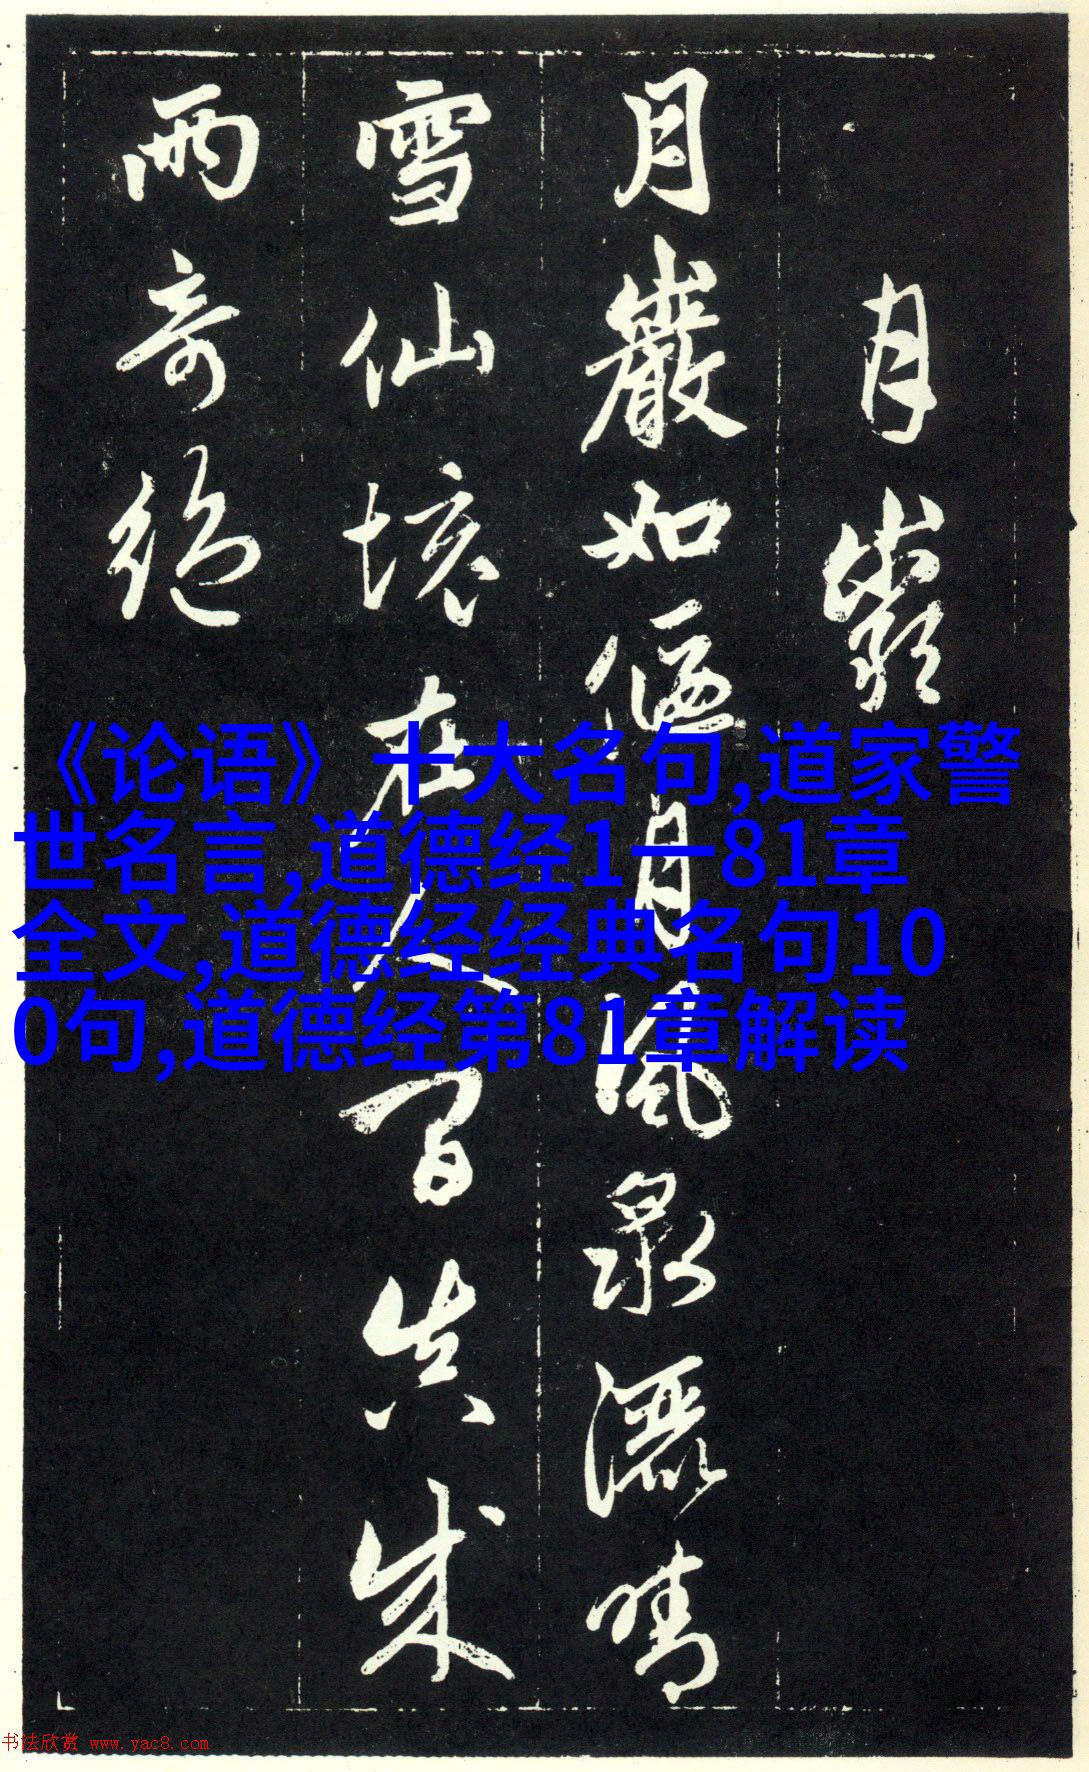 月巖
月巖如偃月風泉灑晴
雪仙境在人間真成
兩奇絕
《论语》十大名句,道家警
世名言,道德经1一81章
全文,道德经经典名句10
0句,道德经第81章解读
书法欣赏 www.yac8.com